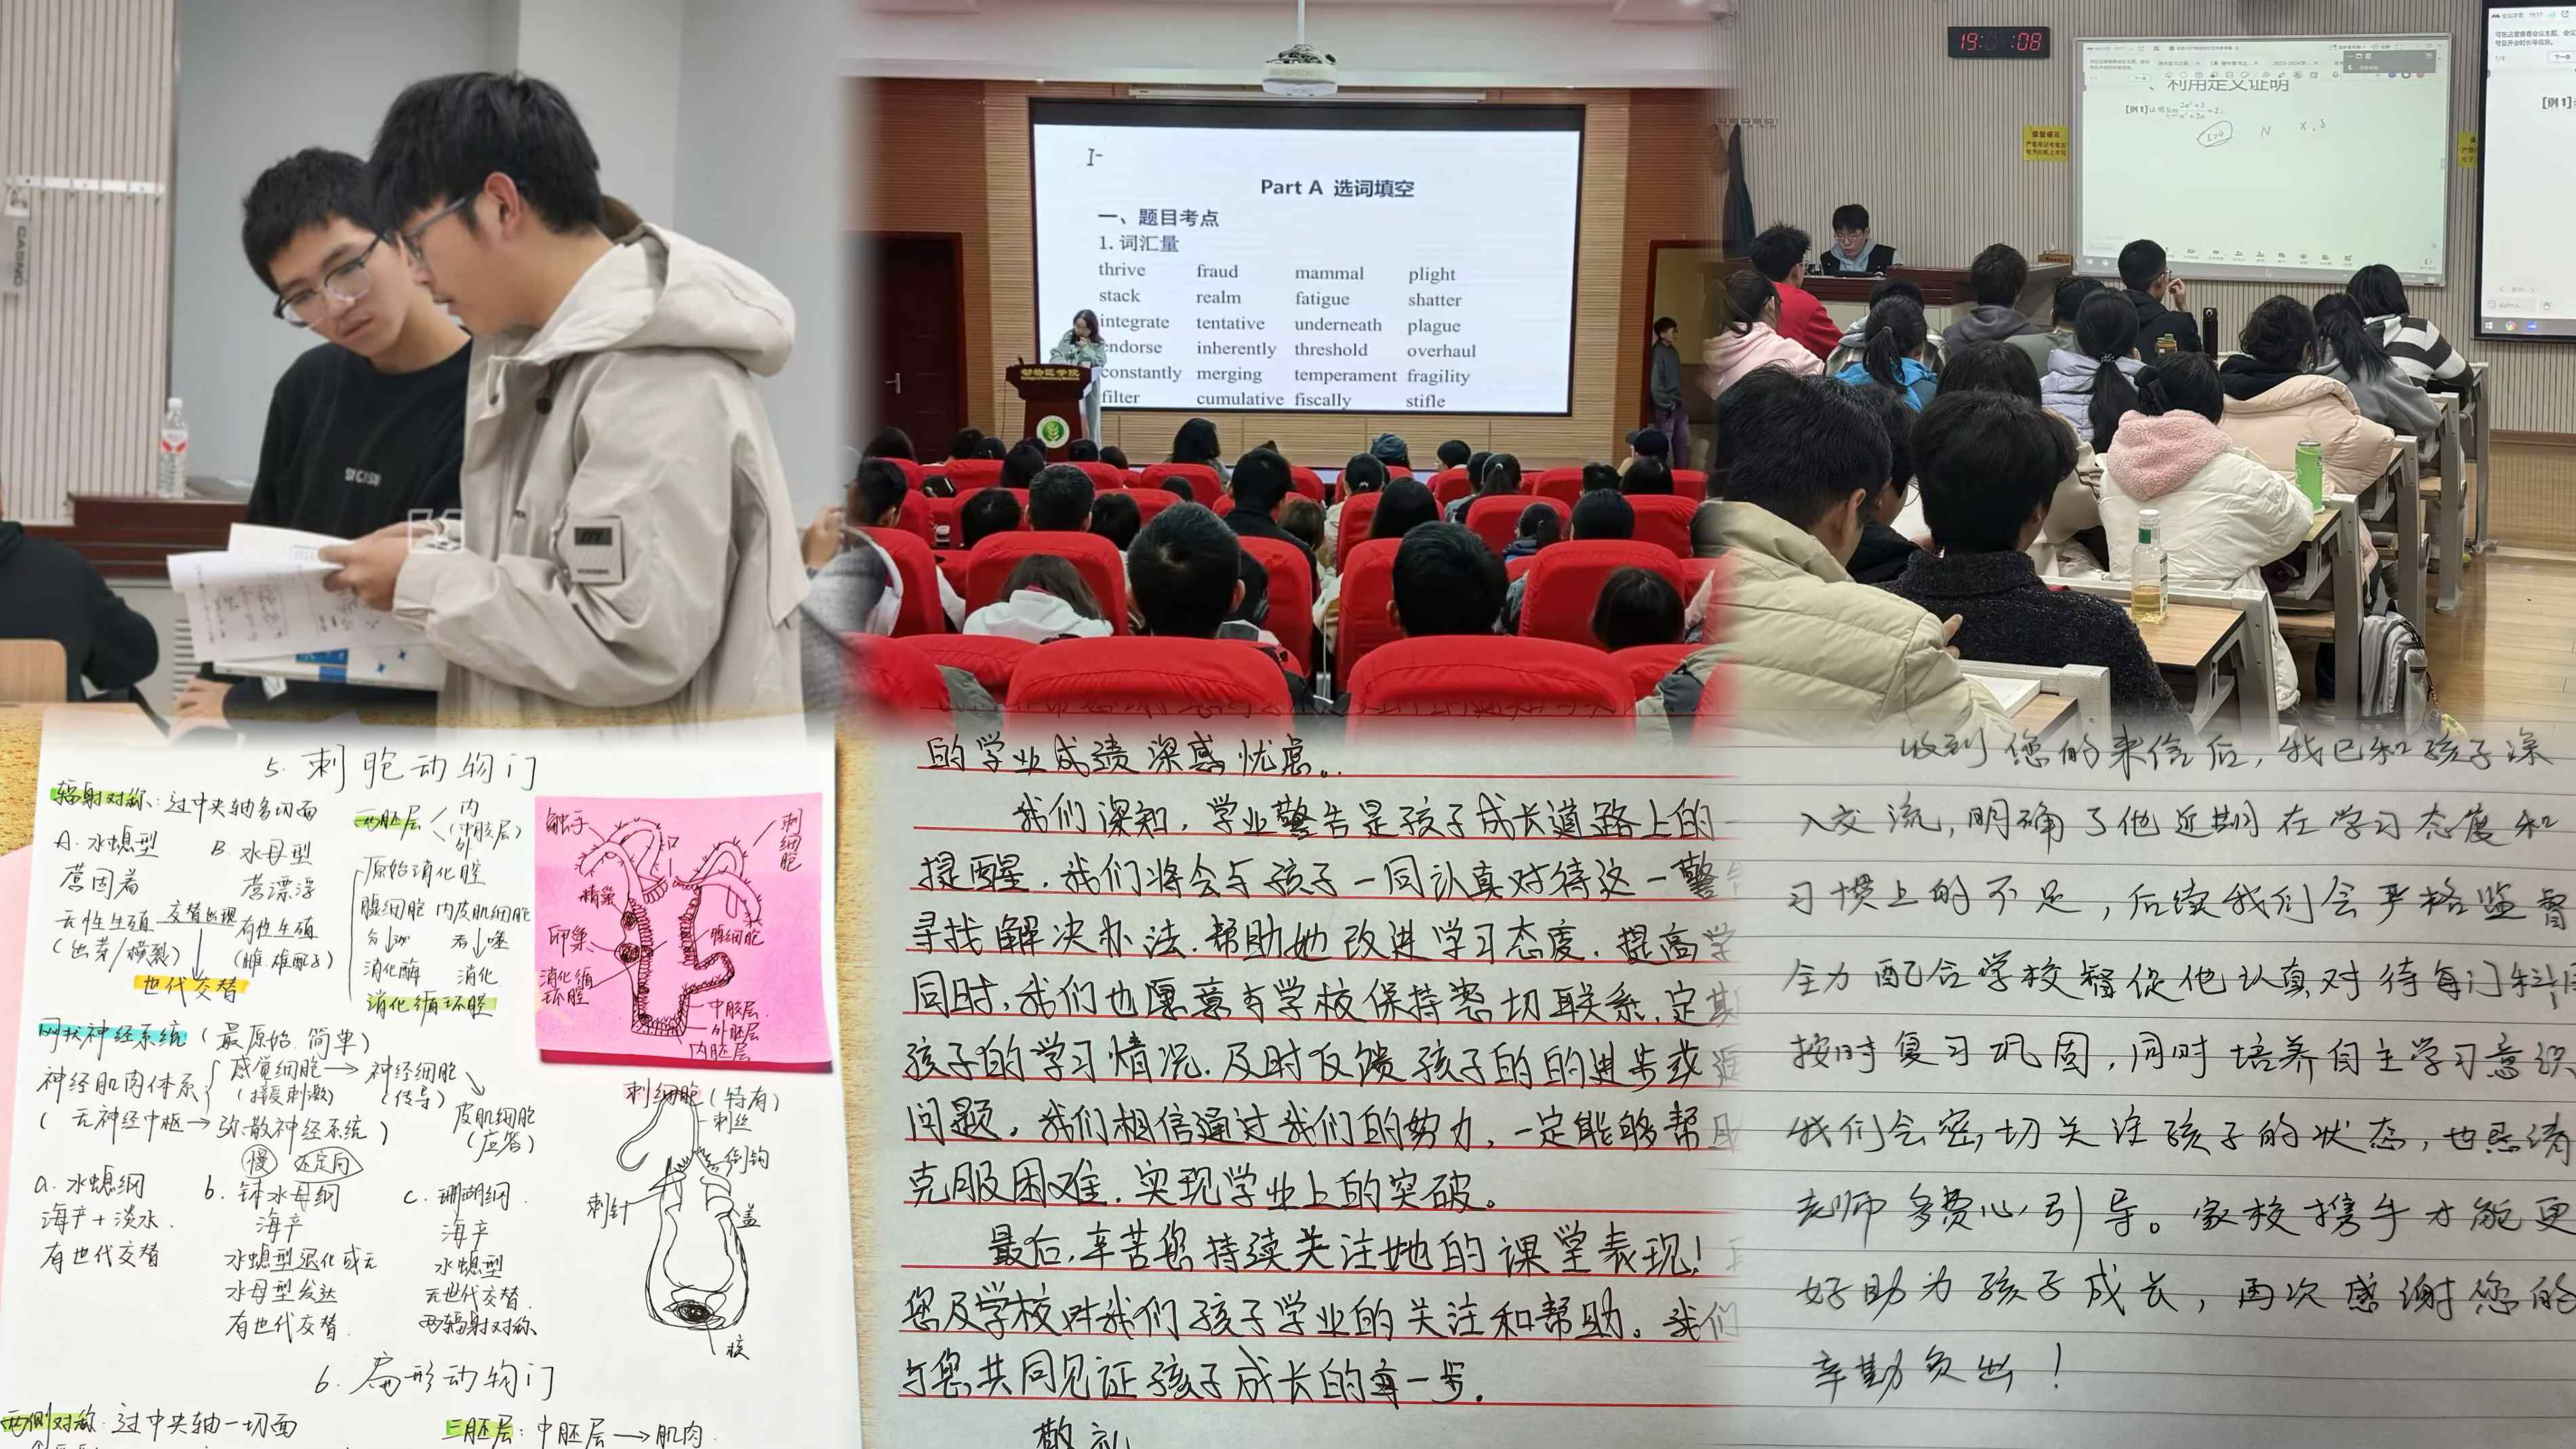 CASNO
Part A 选词填空
一、题目考点
1. 词汇量
thrive fraud mammal plight
stack realm fatigue shatter
integrate tentative underneath plague
endorse inherently threshold overhaul
constantly merging temperament fragility
filter cumulative fiscally stifle
动物医学院
19: :08
、利用定义证明
[例1]证明
N X,δ
[例1]
5. 刺胞动物门
辐射对称:过中央轴多切面
A. 水螅型
营固着
无性生殖
(出芽/横裂)
B. 水母型
营漂浮
有性生殖
(雌雄配子)
交替出现
世代交替
两胚层
内
(中胶层)
外
原始消化腔
腺细胞 内皮肌细胞
分泌 吞噬
消化酶 消化
消化循环腔
网状神经系统(最原始.简单)
神经肌肉体系
感觉细胞→神经细胞
(接受刺激) (传导)
皮肌细胞
(应答)
(无神经中枢→弥散神经系统)
慢 不定向
a. 水螅纲
海产+淡水.
有世代交替
b. 钵水母纲
海产
水螅型退化或无
水母型发达
有世代交替.
c. 珊瑚纲.
海产
水螅型
无世代交替.
两辐射对称
触手
口
刺细胞
精巢
卵巢
腺细胞
消化循环腔
中胶层.
外胚层
内胚层
刺细胞(特有)
刺丝
倒钩
刺针
盖
核
6. 扁形动物门
两侧对称:过中央轴一切面
三胚层:中胚层→肌肉.
的学业成绩深感忧虑。
我们深知,学业警告是孩子成长道路上的
提醒.我们将会与孩子一同认真对待这一警
寻找解决办法.帮助她改进学习态度.提高学
同时,我们也愿意与学校保持密切联系,定期
孩子的学习情况.及时反馈孩子的的进步或
问题,我们相信通过我们的努力,一定能够帮
克服困难.实现学业上的突破。
最后,辛苦您持续关注她的课堂表现!
您及学校对我们孩子学业的关注和帮助。我们
与您共同见证孩子成长的每一步.
敬礼
收到您的来信后,我已和孩子深
入交流,明确了他近期在学习态度和
习惯上的不足,后续我们会严格监督
全力配合学校督促他认真对待每门科目
按时复习巩固,同时培养自主学习意识
我们会密切关注孩子的状态,也恳请
老师多费心引导。家校携手才能更
好助力孩子成长,再次感谢您的
辛勤负出!